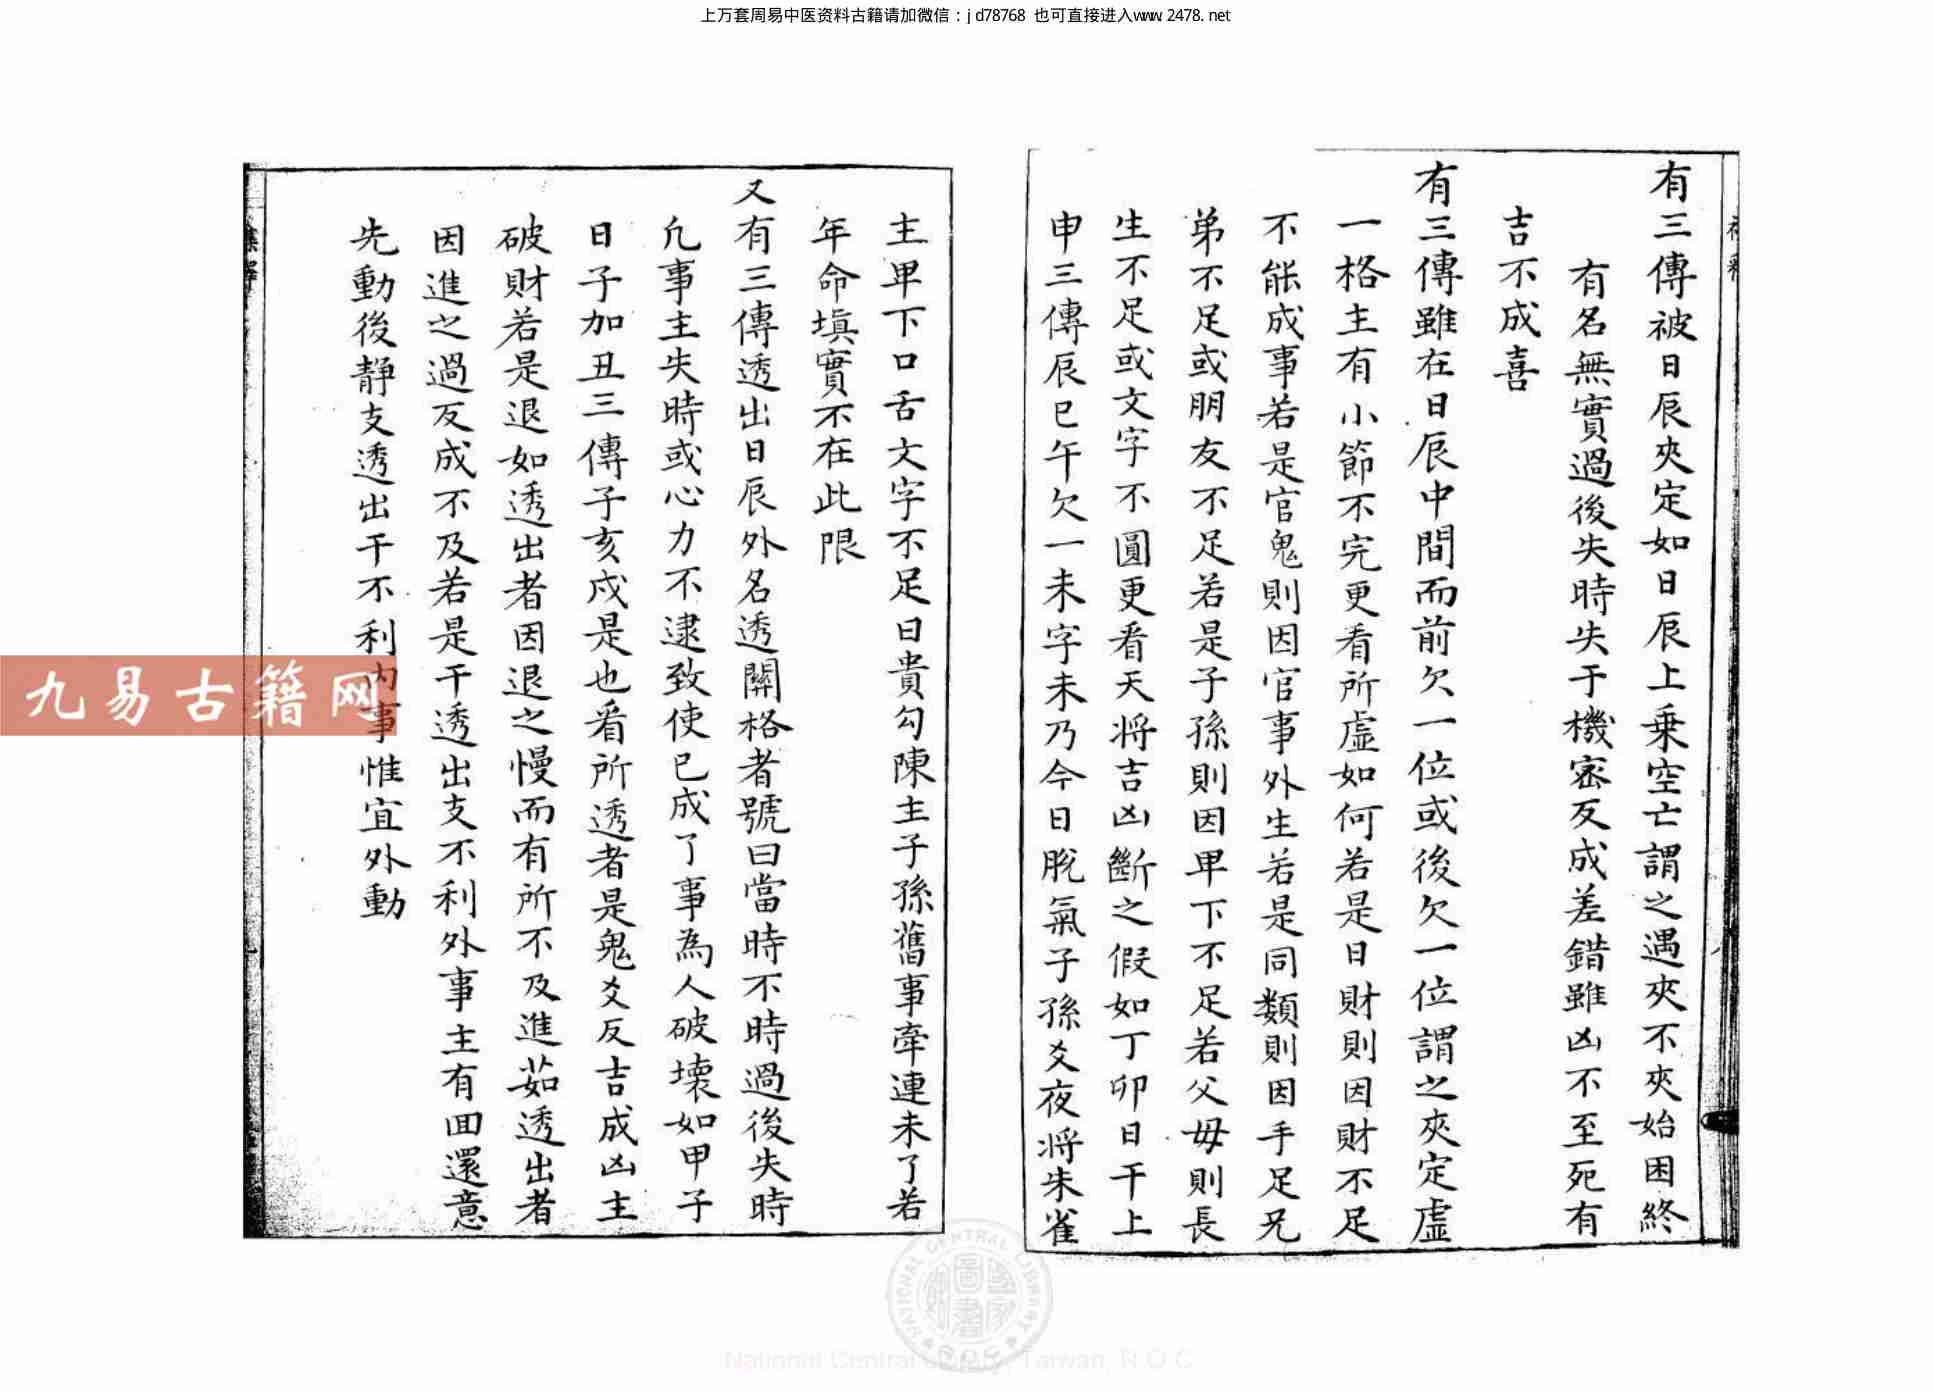 上万套周易中医资料古籍请加微信：jd78768 也可直接进入www.2478.net
有三傳被日辰夾定如日辰上乗空亡謂之遇夾不夾始困終
有名無實過後失時失于機宻反成差錯雖凶不至死有
吉不成喜
有三傳雖在日辰中間而前欠一位或後欠一位謂之夾定虛
一格主有小節不完更看所虛如何若是日財則因財不足
不能成事若是官鬼則因官事外生若是同類則因手足兄
弟不足或朋友不足若是子孫則因卑下不足若父母則長
生不足或文字不圓更看天将吉凶斷之假如丁卯日干上
申三傳辰巳午欠一未字未乃今日脫氣子孫爻夜将朱雀
主卑下口舌文字不足日貴勾陳主子孫舊事牽連未了若
年命塡實不在此限
又有三傳透出日辰外名透關格者號曰當時不時過後失時
凢事主失時或心力不逮致使已成了事為人破壞如甲子
日子加丑三傳子亥戍是也看所透者是鬼爻反吉成凶主
破財若是退如透出者因退之慢而有所不及進茹透出者
因進之過反成不及若是干透出支不利外事主有囬還意
先動後静支透出干不利内事惟宜外動
九易古籍网
NATIONAL CENTRAL LIBRARY
國家圖書館
National Central Library, Taiwan, R.O.C